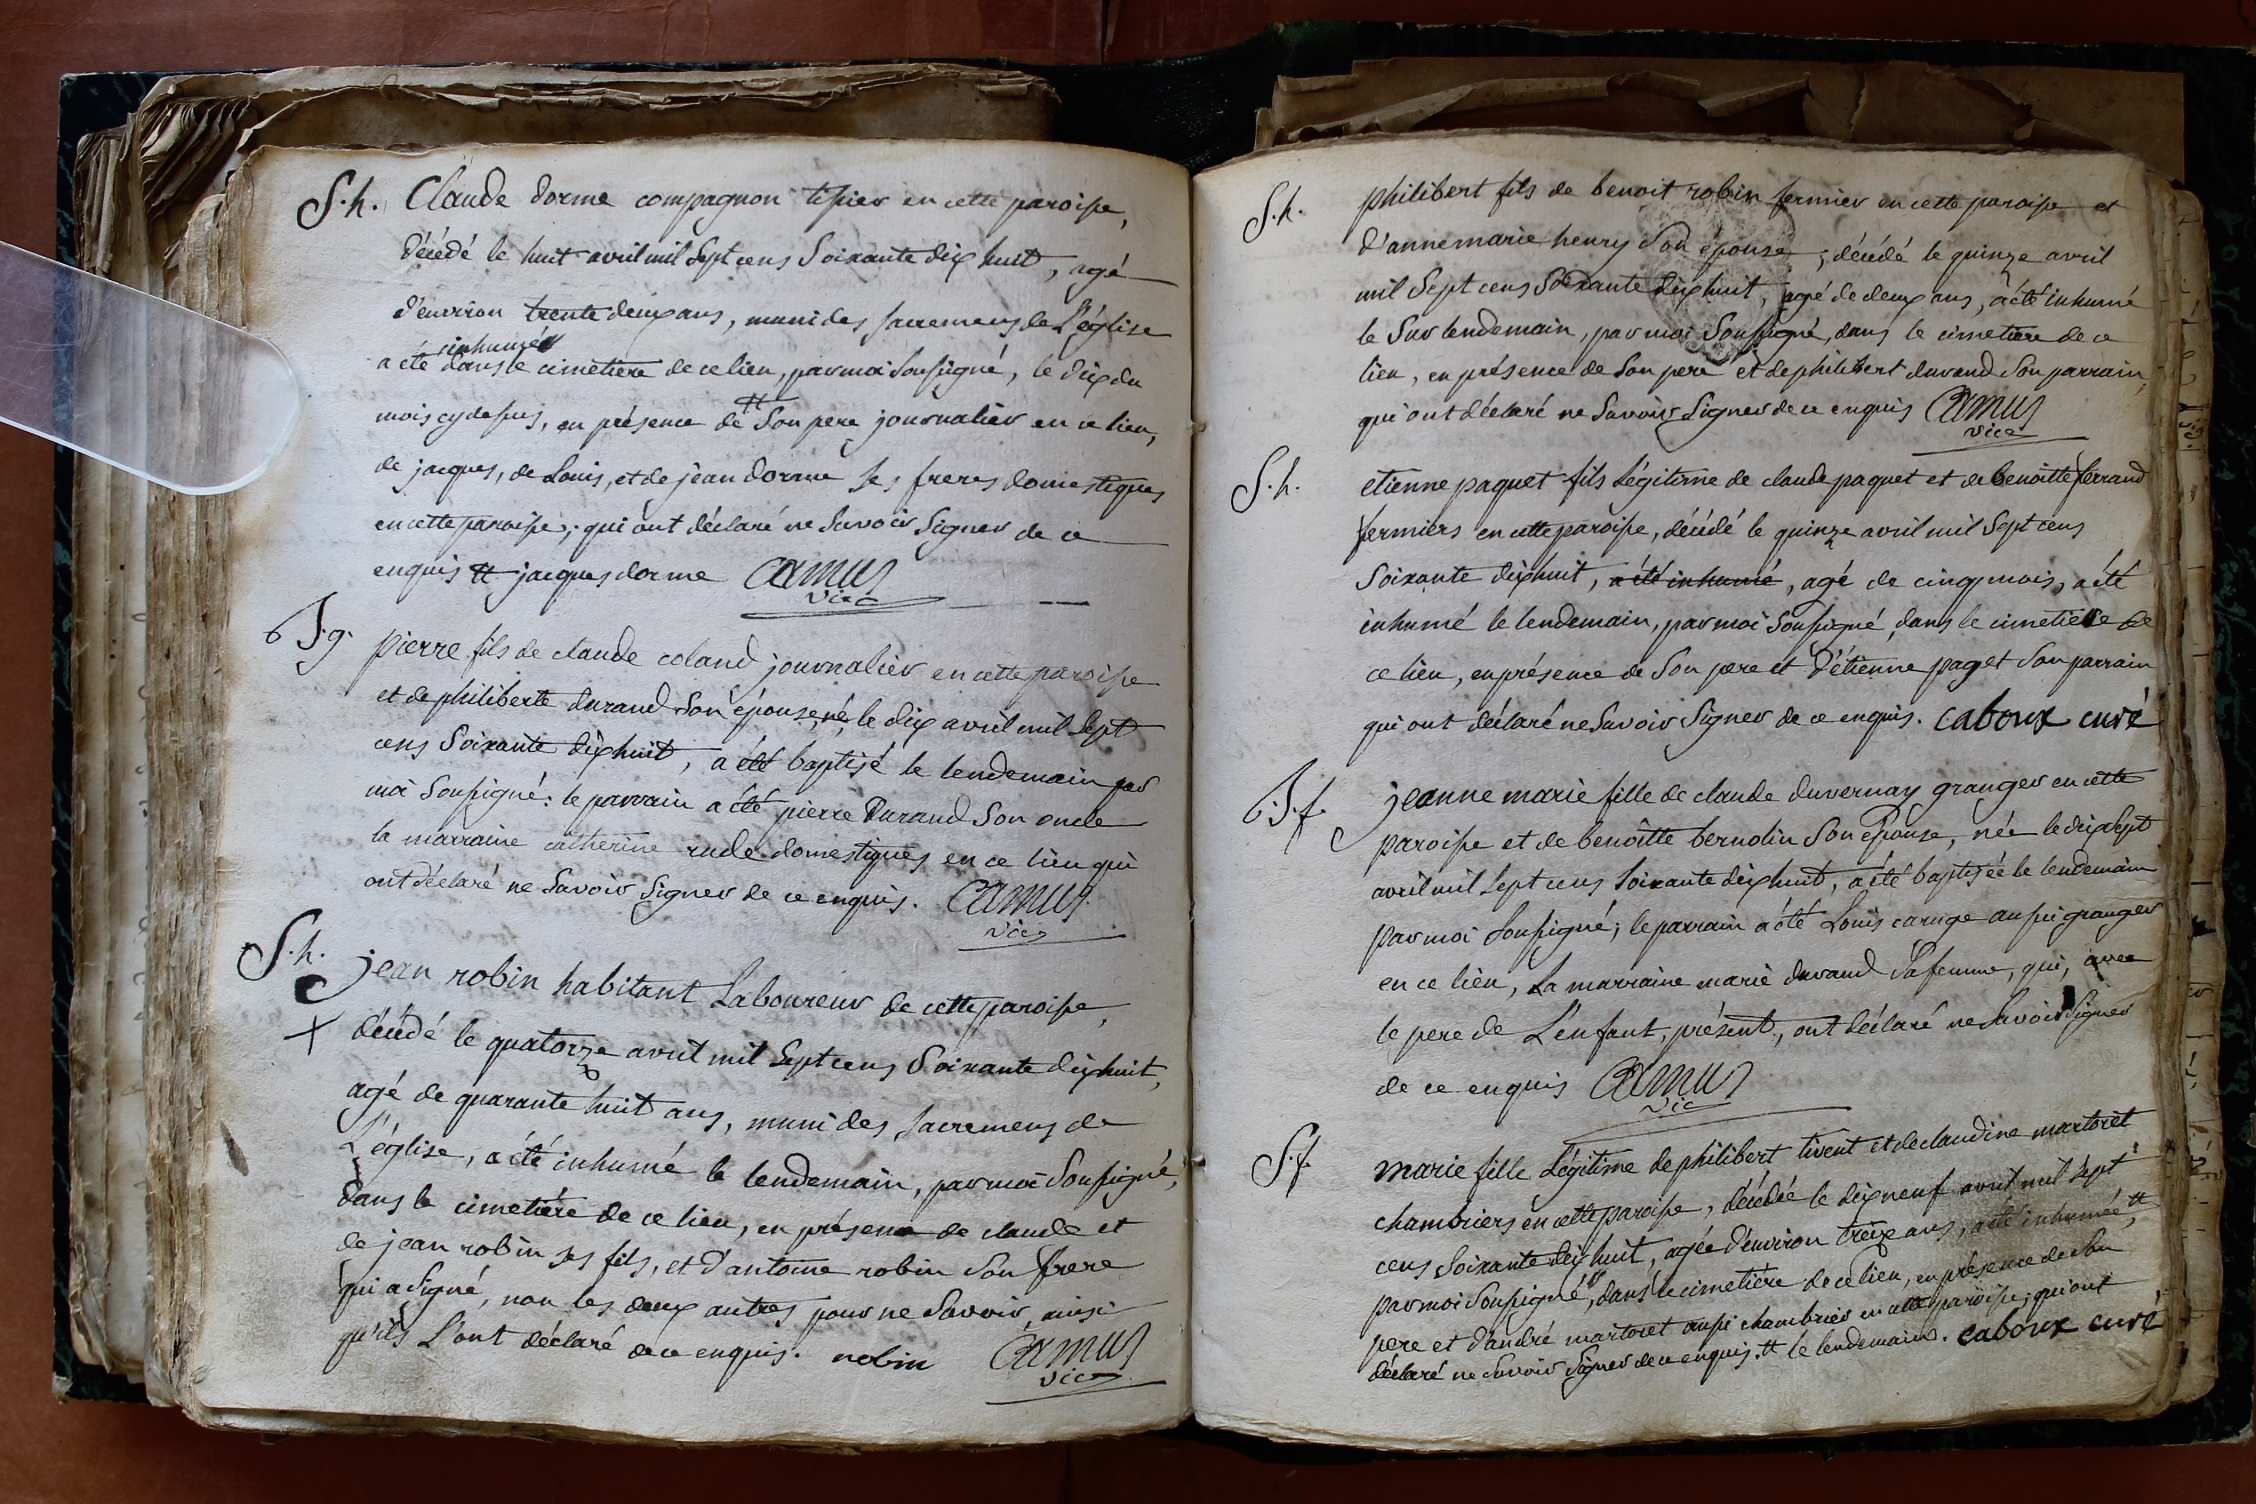 S.h. Claude dorme compagnon tissier en cette paroisse,
décédé le huit avril mil sept cens soixante dix huit, agé
d'environ trente deux ans, muni des sacremens de L'église
inhumé
a été dans le cimetiere de ce lieu, par moi soussigné, le dix du
mois cy dessus, en présence de # son pere journalier en ce lieu,
de jacques, de Louis, et de jean dorme ses freres domestiques
en cette paroisse; qui ont déclaré ne savoir signer de ce
enquis # jacques dorme Camus
vic
b.g. pierre fils de claude coland journalier en cette paroisse
et de philiberte durand son épouse, né le dix avril mil sept
cens soixante dix huit, a été baptisé le lendemain par
moi soussigné: le parrain a été pierre Durand son oncle
la marraine catherine rude domestiques en ce lieu qui
ont déclaré ne savoir signer de ce enquis. Camus
vic
S.h. jean robin habitant Laboureur de cette paroisse,
décédé le quatorze avril mil sept cens soixante dix huit,
agé de quarante huit ans, muni des sacremens de
L'église, a été inhumé le lendemain, par moi soussigné,
dans le cimetiére de ce lieu, en présence de claude et
de jean robin ses fils, et d'antoine robin son frere
qui a signé, non les deux autres pour ne savoir, ainsi
qu'ils L'ont déclaré de ce enquis. robin Camus
vic
S.h. philibert fils de benoit robin fermier en cette paroisse et
d'anne marie henry son épouse; décédé le quinze avril
mil sept cens soixante dix huit, agé de deux ans, a été inhumé
le sur lendemain, par moi soussigné, dans le cimetiere de ce
lieu, en présence de son pere et de philibert durand son parrain,
qui ont déclaré ne savoir signer de ce enquis Camus
vic
S.h. etienne paquet fils Légitime de claude paquet et de benoitte ferrand
fermiers en cette paroisse, décédé le quinze avril mil sept cens
soixante dix huit, a été inhumé, agé de cinq mois, a été
inhumé le lendemain, par moi soussigné, dans le cimetiere de
ce lieu, en présence de son pere et d'étienne paget son parrain
qui ont déclaré ne savoir signer de ce enquis. caboux curé
b.f. jeanne marie fille de claude duvernay granger en cette
paroisse et de benoitte bernolin son épouse, née le dix sept
avril mil sept cens soixante dix huit, a été baptisée le lendemain
par moi soussigné; le parrain a été Louis caruge aussi granger
en ce lieu, La marraine marie durand sa femme, qui, avec
le pere de L'enfant, présent, ont déclaré ne savoir signer
de ce enquis Camus
vic
S.f. marie fille Légitime de philibert tivent et de claudine martoret
chambriers en cette paroisse, décédée le dix neuf avril mil sept
cens soixante dix huit, agée d'environ treize ans, a été inhumée #
par moi soussigné, dans le cimetiére de ce lieu, en présence de son
pere et d'andré martoret aussi chambrier en cette paroisse; qui ont
déclaré ne savoir signer de ce enquis. # le lendemain. caboux curé